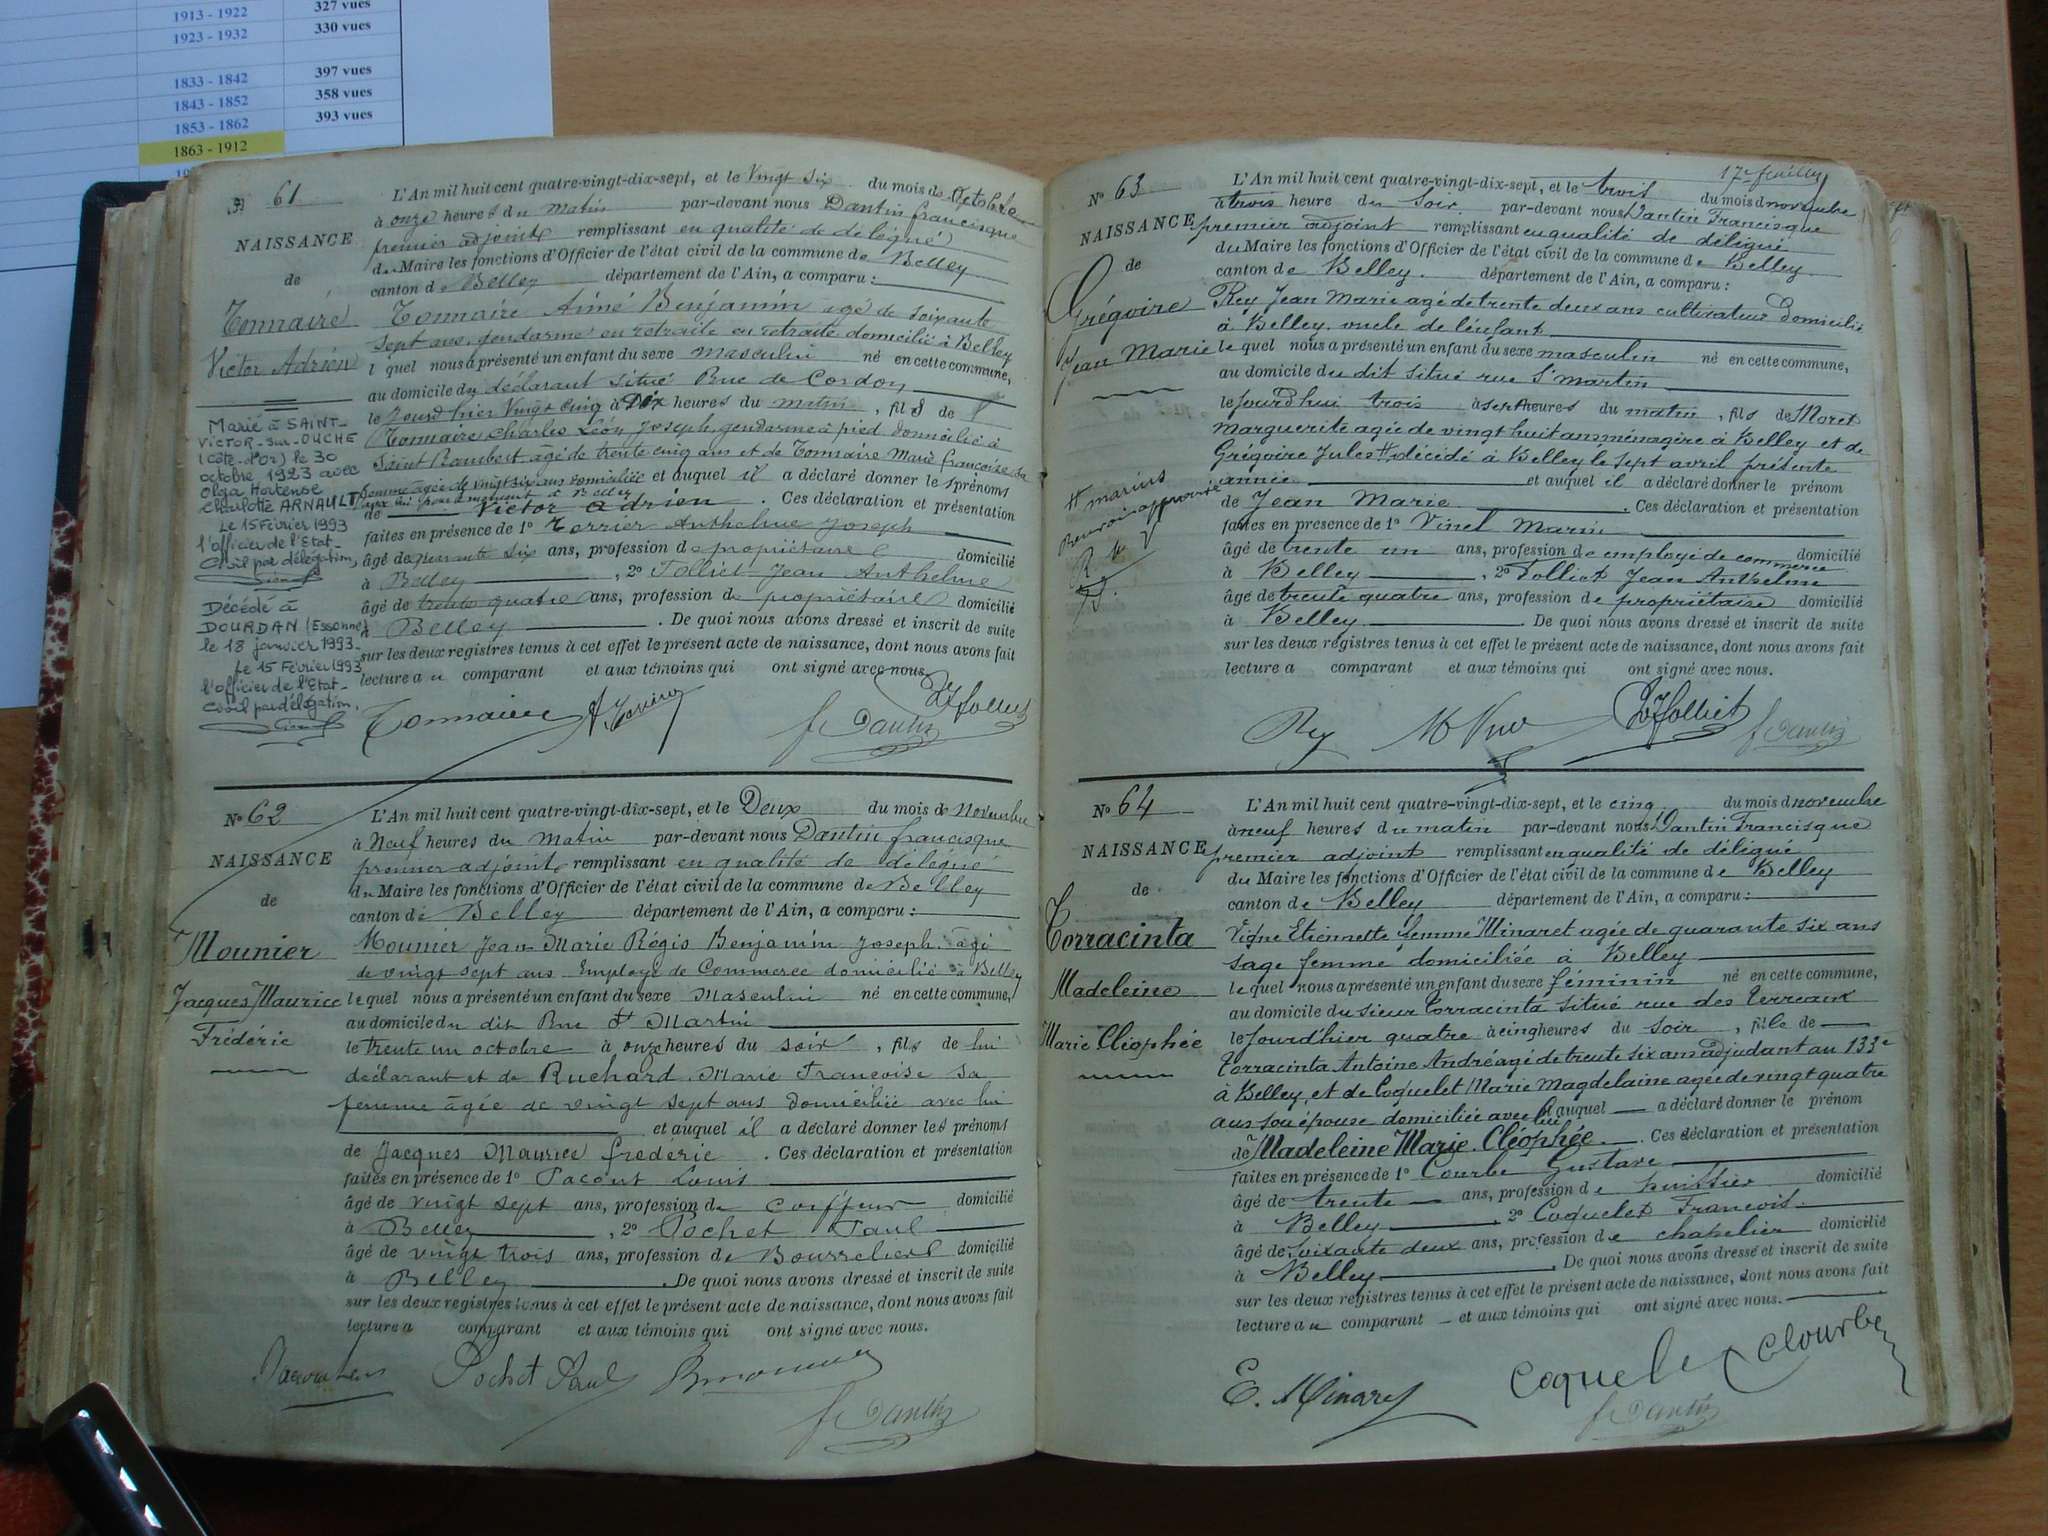 1913 - 1922 327 vues
1923 - 1932 330 vues
1833 - 1842 397 vues
1843 - 1852 358 vues
1853 - 1862 393 vues
1863 - 1912
61
NAISSANCE
de
Tonnaire
Victor Adrien
Marié à SAINT-
VICTOR-sur-OUCHE
(Côte-d'Or) le 30
octobre 1923 avec
Olga Hortense
Charlotte ARNAULT
Le 15 Février 1993
l'officier de l'Etat-
Civil par délégation,
Décédé à
DOURDAN (Essonne)
le 18 janvier 1993
Le 15 Février 1993
l'officier de l'Etat-
Civil par délégation,
L'An mil huit cent quatre-vingt-dix-sept, et le Vingt six du mois de Octobre
à onze heures du Matin par-devant nous Dantin francisque
premier adjoint remplissant en qualité de délégué
du Maire les fonctions d'Officier de l'état civil de la commune de Belley
canton de Belley département de l'Ain, a comparu :
Tonnaire Aimé Benjamin agé de soixante
sept ans, gendarme en retraite en retraite domicilié à Belley
l quel nous a présenté un enfant du sexe masculin né en cette commune,
au domicile du déclarant situé Rue de Cordon
le jourd'hier Vingt cinq à Dix heures du matin, fils de
Tonnaire Charles Léon Joseph, gendarme à pied domicilié à
Saint Rambert agé de trente cinq ans et de Tonnaire Marie francoise sa
femme âgée de vingt six ans domiciliée et auquel il a déclaré donner les prénoms
de Victor Adrien. Ces déclaration et présentation
faites en présence de 1° Terrier Anthelme Joseph
âgé de quarante six ans, profession de propriétaire domicilié
à Belley, 2° Tolliet Jean Anthelme
âgé de trente quatre ans, profession de propriétaire domicilié
à Belley. De quoi nous avons dressé et inscrit de suite
sur les deux registres tenus à cet effet le présent acte de naissance, dont nous avons fait
lecture au comparant et aux témoins qui ont signé avec nous.
Tonnaire
f Dantin
No 62
NAISSANCE
de
Mounier
Jacques Maurice
Frédéric
L'An mil huit cent quatre-vingt-dix-sept, et le Deux du mois de Novembre
à Neuf heures du matin par-devant nous Dantin francisque
premier adjoint remplissant en qualité de délégué
du Maire les fonctions d'Officier de l'état civil de la commune de Belley
canton de Belley département de l'Ain, a comparu :
Mounier Jean Marie Régis Benjamin Joseph agé
de vingt sept ans Employé de Commerce domicilié à Belley
lequel nous a présenté un enfant du sexe Masculin né en cette commune,
au domicile du dit Rue St Martin
le trente un octobre à onze heures du soir, fils de lui
déclarant et de Ruchard Marie Francoise sa
femme âgée de vingt sept ans domiciliée avec lui
et auquel il a déclaré donner les prénoms
de Jacques Maurice frédéric. Ces déclaration et présentation
faites en présence de 1° Pacout Louis
âgé de vingt sept ans, profession de coiffeur domicilié
à Belley, 2° Pochet Paul
âgé de vingt trois ans, profession de Bourrelier domicilié
à Belley. De quoi nous avons dressé et inscrit de suite
sur les deux registres tenus à cet effet le présent acte de naissance, dont nous avons fait
lecture a comparant et aux témoins qui ont signé avec nous.
Pochet Paul
f Dantin
17e feuillet
No 63
NAISSANCE
de
Grégoire
Jean Marie
# marius
Renvoi approuvé
L'An mil huit cent quatre-vingt-dix-sept, et le trois du mois d novembre
à trois heure du soir par-devant nous Dantin Francisque
premier adjoint remplissant en qualité de délégué
du Maire les fonctions d'Officier de l'état civil de la commune de Belley
canton de Belley département de l'Ain, a comparu :
Rey Jean Marie agé de trente deux ans cultivateur domicilié
à Belley, oncle de l'enfant
le quel nous a présenté un enfant du sexe masculin né en cette commune,
au domicile du dit situé rue St martin
le jourd'hui trois à sept heures du matin, fils de Moret
Marguerite agée de vingt huit ans ménagère à Belley et de
Grégoire Jules # décédé à Belley le sept avril présente
année et auquel il a déclaré donner le prénom
de Jean Marie. Ces déclaration et présentation
faites en présence de 1° Vinel Marin
âgé de trente un ans, profession de employé de commerce domicilié
à Belley, 2° Tolliet Jean Anthelme
âgé de trente quatre ans, profession de propriétaire domicilié
à Belley. De quoi nous avons dressé et inscrit de suite
sur les deux registres tenus à cet effet le présent acte de naissance, dont nous avons fait
lecture a comparant et aux témoins qui ont signé avec nous.
Rey
f Dantin
No 64
NAISSANCE
de
Torracinta
Madeleine
Marie Cléophée
L'An mil huit cent quatre-vingt-dix-sept, et le cinq du mois d novembre
à neuf heures du matin par-devant nous Dantin Francisque
premier adjoint remplissant en qualité de délégué
du Maire les fonctions d'Officier de l'état civil de la commune de Belley
canton de Belley département de l'Ain, a comparu :
Vigne Etiennette femme Minaret agée de quarante six ans
sage femme domiciliée à Belley
le quel nous a présenté un enfant du sexe féminin né en cette commune,
au domicile du sieur Torracinta situé rue des Terreaux
le jourd'hier quatre à cinq heures du soir, fille de
Torracinta Antoine André agé de trente six ans adjudant au 133e
à Belley, et de Coquelet Marie Magdelaine agée de vingt quatre
ans son épouse domiciliée avec lui et auquel a déclaré donner le prénom
de Madeleine Marie Cléophée. Ces déclaration et présentation
faites en présence de 1° Courbe Gustave
âgé de trente ans, profession de huissier domicilié
à Belley, 2° Coquelet Francois
âgé de soixante deux ans, profession de chapelier domicilié
à Belley. De quoi nous avons dressé et inscrit de suite
sur les deux registres tenus à cet effet le présent acte de naissance, dont nous avons fait
lecture au comparant et aux témoins qui ont signé avec nous.
E. Minaret Coquelet Courbe
f Dantin